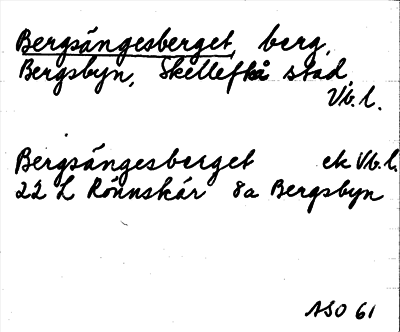 Bergsängesberget, berg,
Bergsbyn, Skellefteå stad,
Vb.l.
Bergsängesberget ek Vb.l.
22 L Rönnskär 8a Bergsbyn
ASO 61